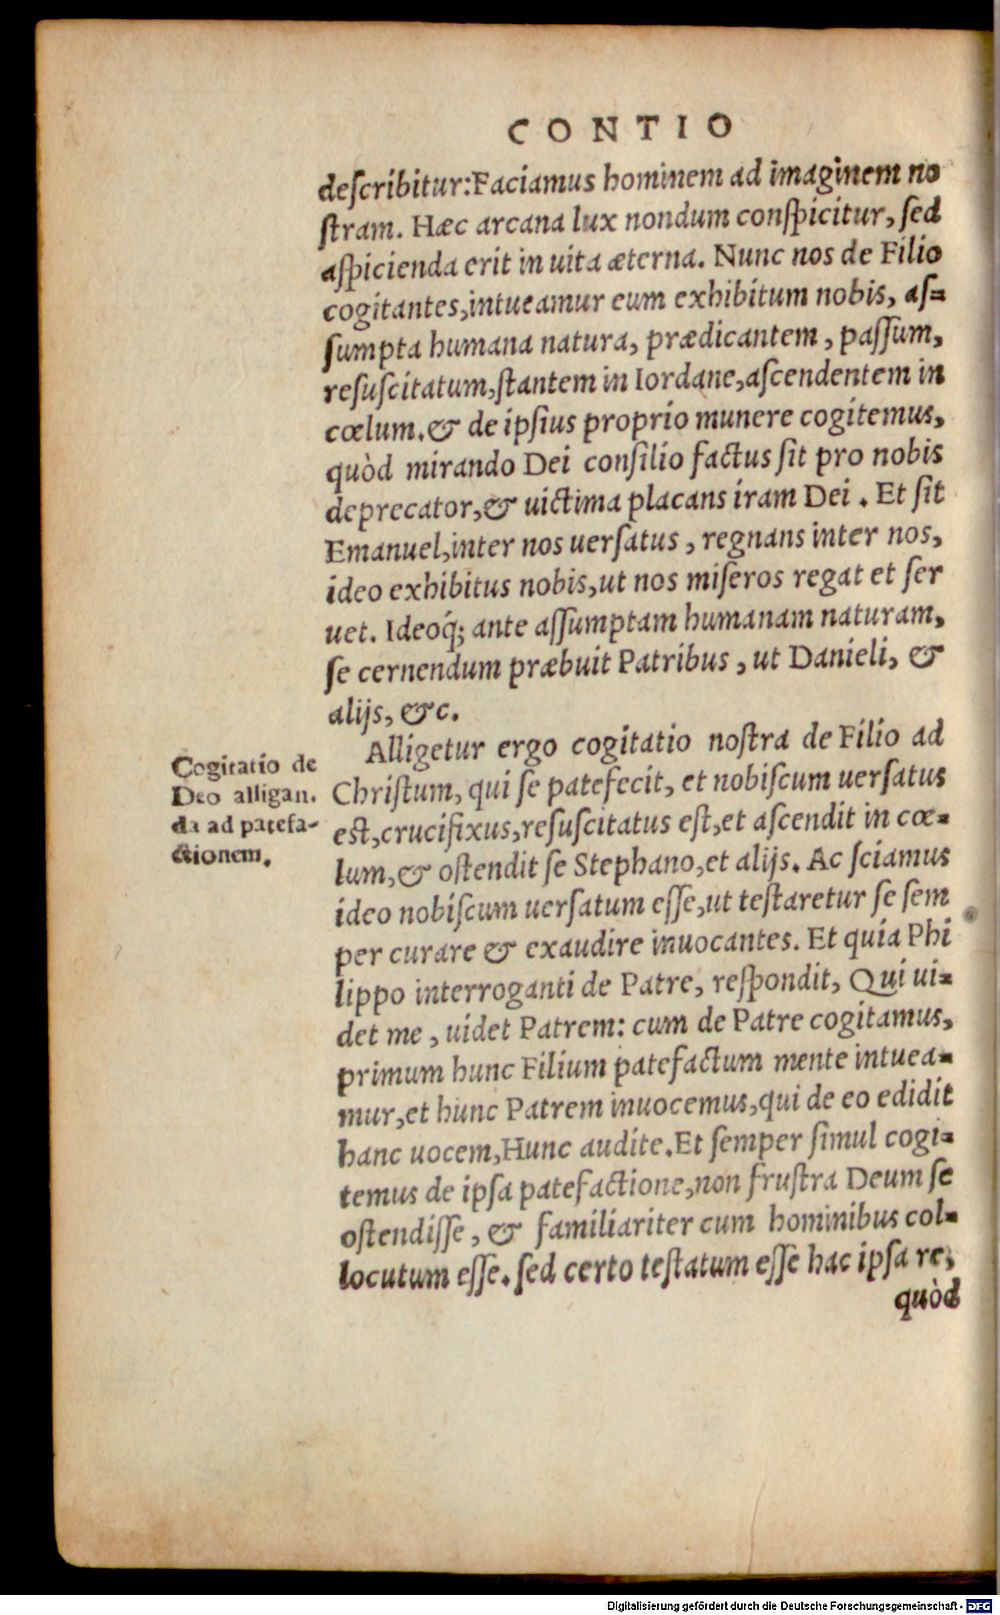 CONTIO
deſcribitur:Faciamus hominem ad imaginem no
ſtram. Hæc arcana lux nondum conſpicitur, ſed
aſpicienda erit in uita æterna. Nunc nos de Filio
cogitantes,intueamur eum exhibitum nobis, aſ=
ſumpta humana natura, prædicantem, paſſum,
reſuſcitatum,ſtantem in Iordane,aſcendentem in
cœlum.& de ipſius proprio munere cogitemus,
quòd mirando Dei conſilio factus ſit pro nobis
deprecator,& uictima placans iram Dei. Et ſit
Emanuel,inter nos uerſatus, regnans inter nos,
ideo exhibitus nobis,ut nos miſeros regat et ſer
uet. Ideoq́; ante aſſumptam humanam naturam,
ſe cernendum præbuit Patribus, ut Danieli, &
alijs, &c.
Alligetur ergo cogitatio noſtra de Filio ad
Chriſtum, qui ſe patefecit, et nobiſcum uerſatus
eſt,crucifixus,reſuſcitatus eſt,et aſcendit in cœ=
lum,& oſtendit ſe Stephano,et alijs. Ac ſciamus
ideo nobiſcum uerſatum eſſe,ut teſtaretur ſe ſem
per curare & exaudire inuocantes. Et quia Phi
lippo interroganti de Patre, reſpondit, Qui ui=
det me, uidet Patrem: cum de Patre cogitamus,
primum hunc Filium patefactum mente intuea=
mur,et hunc Patrem inuocemus,qui de eo edidit
hanc uocem,Hunc audite.Et ſemper ſimul cogi=
temus de ipſa patefactione,non fruſtra Deum ſe
oſtendiſſe, & familiariter cum hominibus col=
locutum eſſe. ſed certo teſtatum eſſe hac ipſa re,
quòd
Cogitatio de
Deo alligan.
da ad patefa-
ctionem.
Digitalisierung gefördert durch die Deutsche Forschungsgemeinschaft - DFG